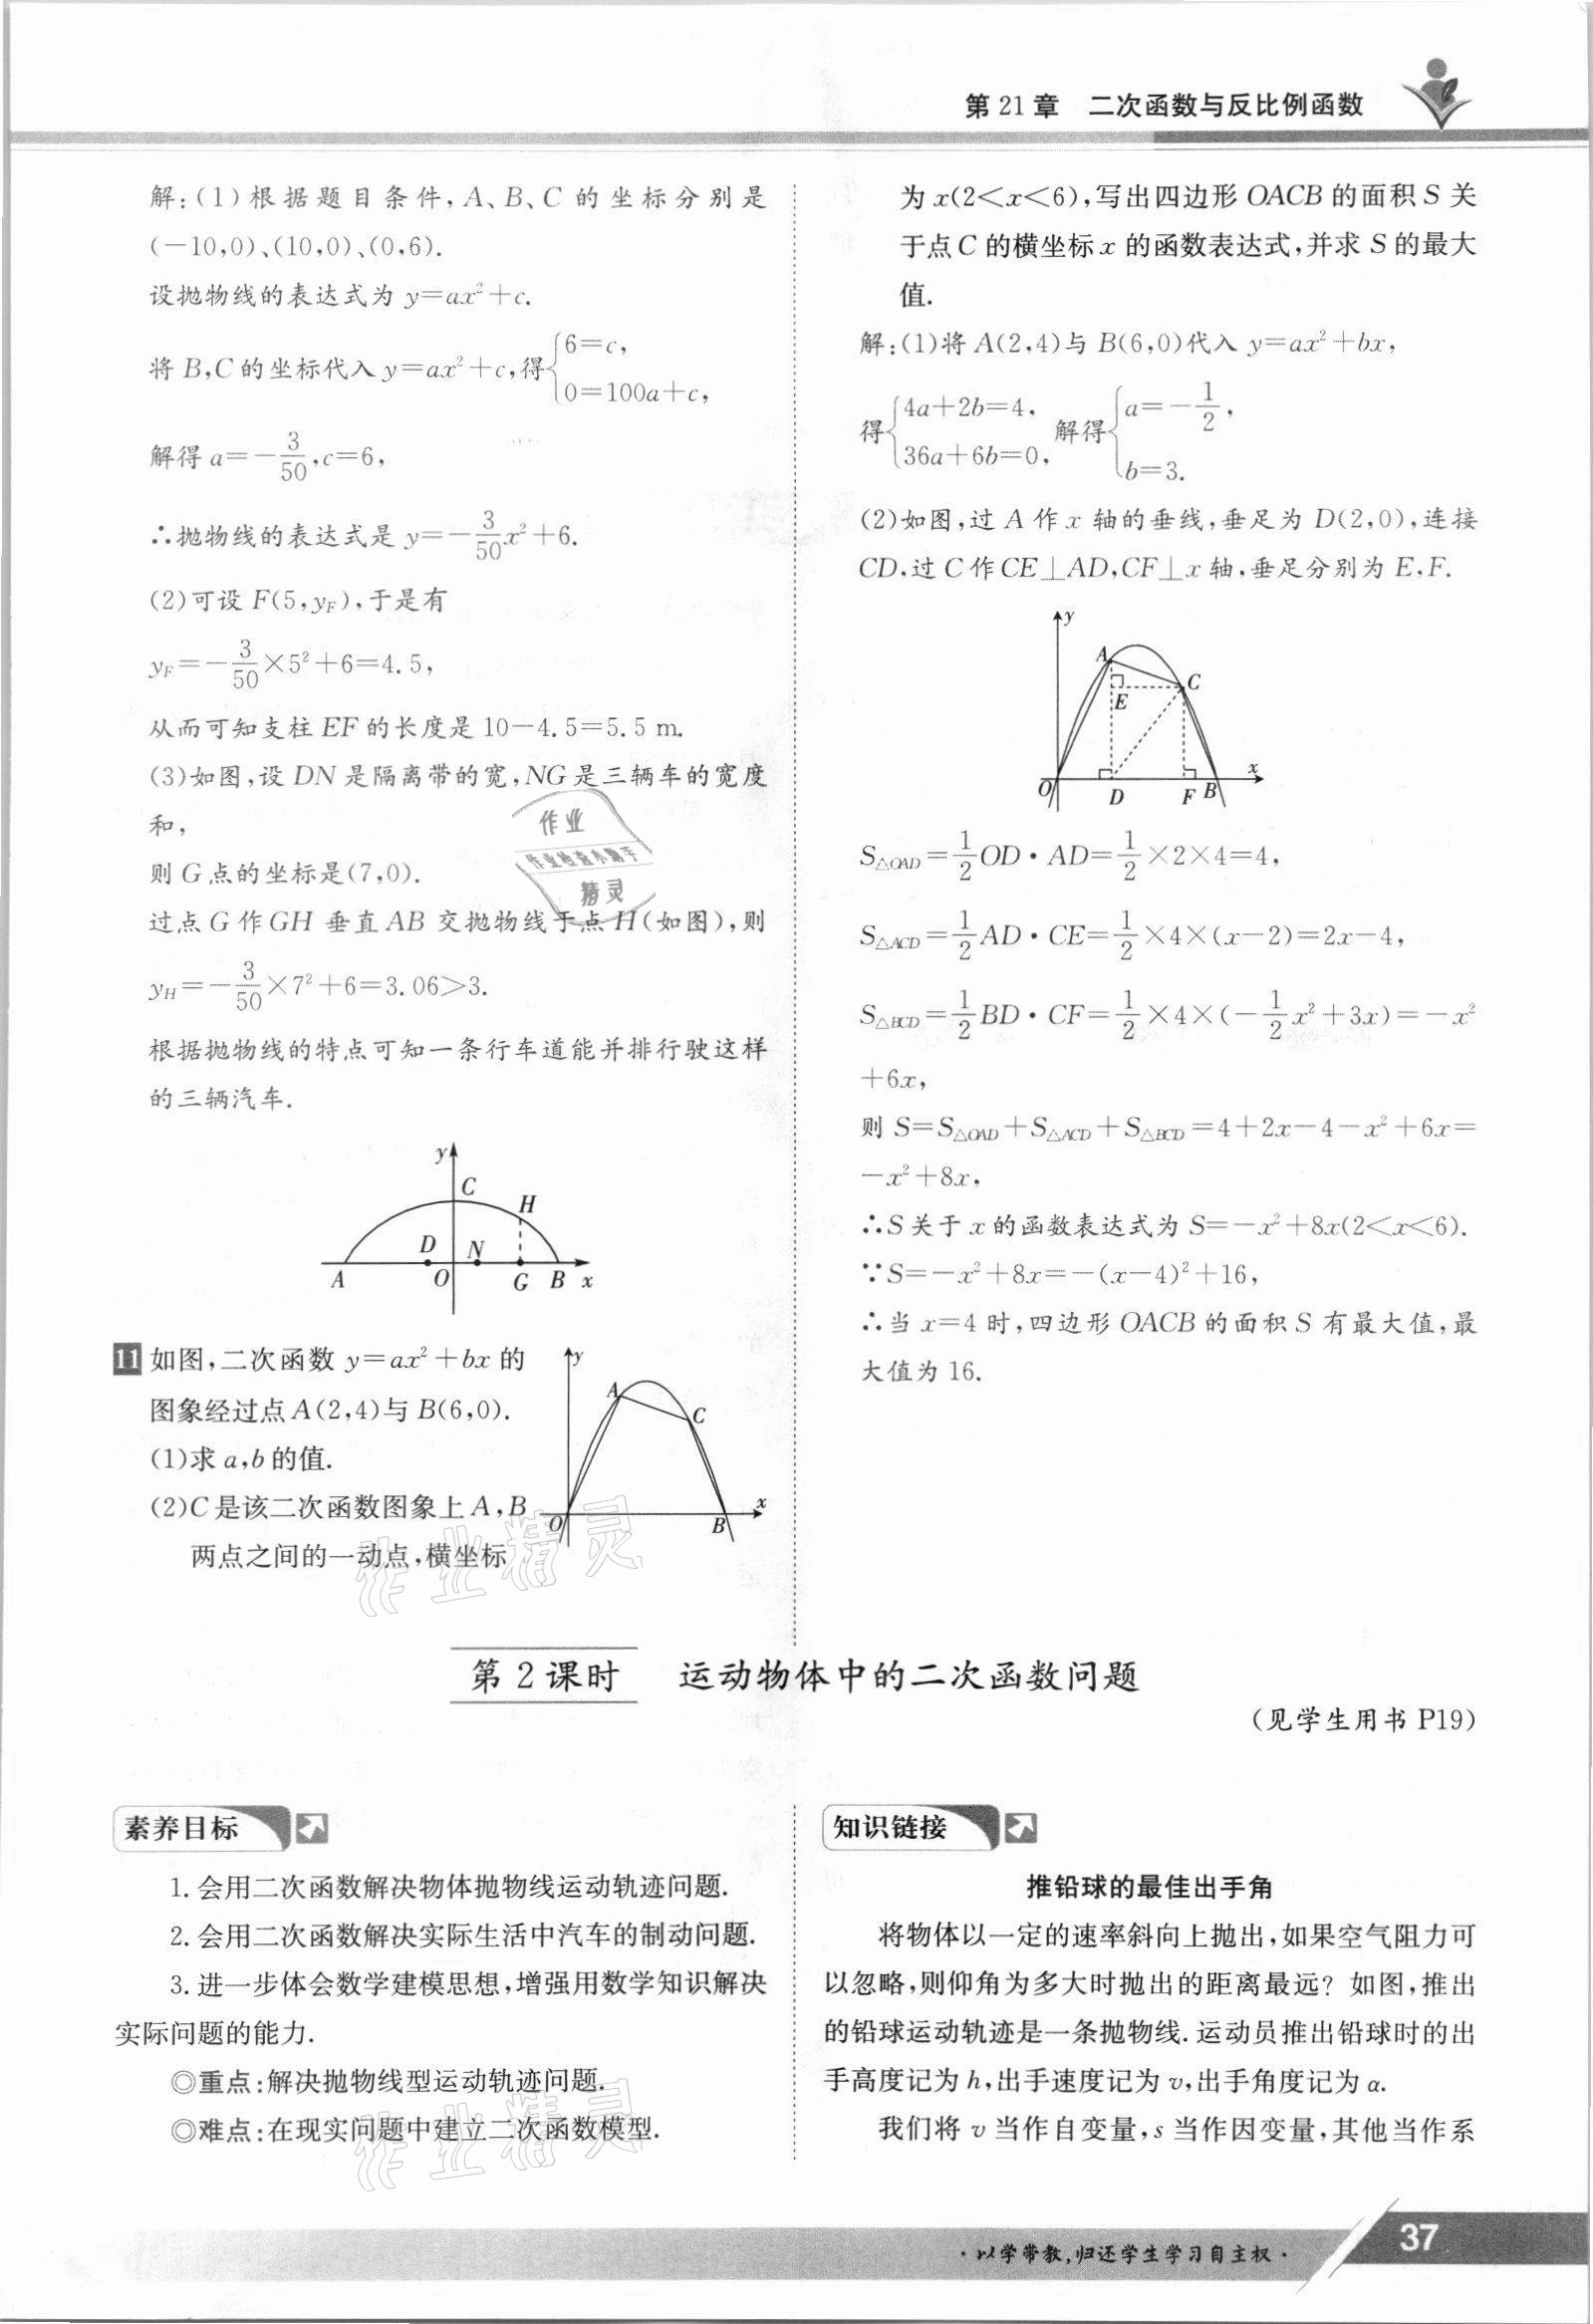 第 21 章　二次函数与反比例函数
解:(1)根据题目条件,A、B、C 的坐标分别是
(-10,0)、(10,0)、(0,6).
设抛物线的表达式为 y=ax²+c.
将 B,C 的坐标代入 y=ax²+c,得{6=c, 0=100a+c,
解得 a=-3/50,c=6,
∴抛物线的表达式是 y=-3/50x²+6.
(2)可设 F(5,y_F),于是有
y_F=-3/50×5²+6=4.5,
从而可知支柱 EF 的长度是 10-4.5=5.5 m.
(3)如图,设 DN 是隔离带的宽,NG 是三辆车的宽度
和,
则 G 点的坐标是(7,0).
过点 G 作 GH 垂直 AB 交抛物线于点 H(如图),则
y_H=-3/50×7²+6=3.06>3.
根据抛物线的特点可知一条行车道能并排行驶这样
的三辆汽车.
y
C
H
D
N
A
O
G
B
x
11 如图,二次函数 y=ax²+bx 的
图象经过点 A(2,4)与 B(6,0).
(1)求 a,b 的值.
(2)C 是该二次函数图象上 A,B
两点之间的一动点,横坐标
y
A
C
x
O
B
为 x(2<x<6),写出四边形 OACB 的面积 S 关
于点 C 的横坐标 x 的函数表达式,并求 S 的最大
值.
解:(1)将 A(2,4)与 B(6,0)代入 y=ax²+bx,
得{4a+2b=4, 36a+6b=0, 解得{a=-1/2, b=3.
(2)如图,过 A 作 x 轴的垂线,垂足为 D(2,0),连接
CD,过 C 作 CE⊥AD,CF⊥x 轴,垂足分别为 E,F.
y
A
C
E
x
O
D
F
B
S△OAD=1/2OD·AD=1/2×2×4=4,
S△ACD=1/2AD·CE=1/2×4×(x-2)=2x-4,
S△BCD=1/2BD·CF=1/2×4×(-1/2x²+3x)=-x²
+6x,
则 S=S△OAD+S△ACD+S△BCD=4+2x-4-x²+6x=
-x²+8x,
∴S 关于 x 的函数表达式为 S=-x²+8x(2<x<6).
∵S=-x²+8x=-(x-4)²+16,
∴当 x=4 时,四边形 OACB 的面积 S 有最大值,最
大值为 16.
作业
作业检查小助手
精灵
作业精灵
第 2 课时　运动物体中的二次函数问题
(见学生用书 P19)
素养目标
1. 会用二次函数解决物体抛物线运动轨迹问题.
2. 会用二次函数解决实际生活中汽车的制动问题.
3. 进一步体会数学建模思想,增强用数学知识解决
实际问题的能力.
◎重点:解决抛物线型运动轨迹问题.
◎难点:在现实问题中建立二次函数模型.
作业精灵
知识链接
推铅球的最佳出手角
将物体以一定的速率斜向上抛出,如果空气阻力可
以忽略,则仰角为多大时抛出的距离最远? 如图,推出
的铅球运动轨迹是一条抛物线. 运动员推出铅球时的出
手高度记为 h,出手速度记为 v,出手角度记为 α.
我们将 v 当作自变量,s 当作因变量,其他当作系
·以学带教,归还学生学习自主权·
37